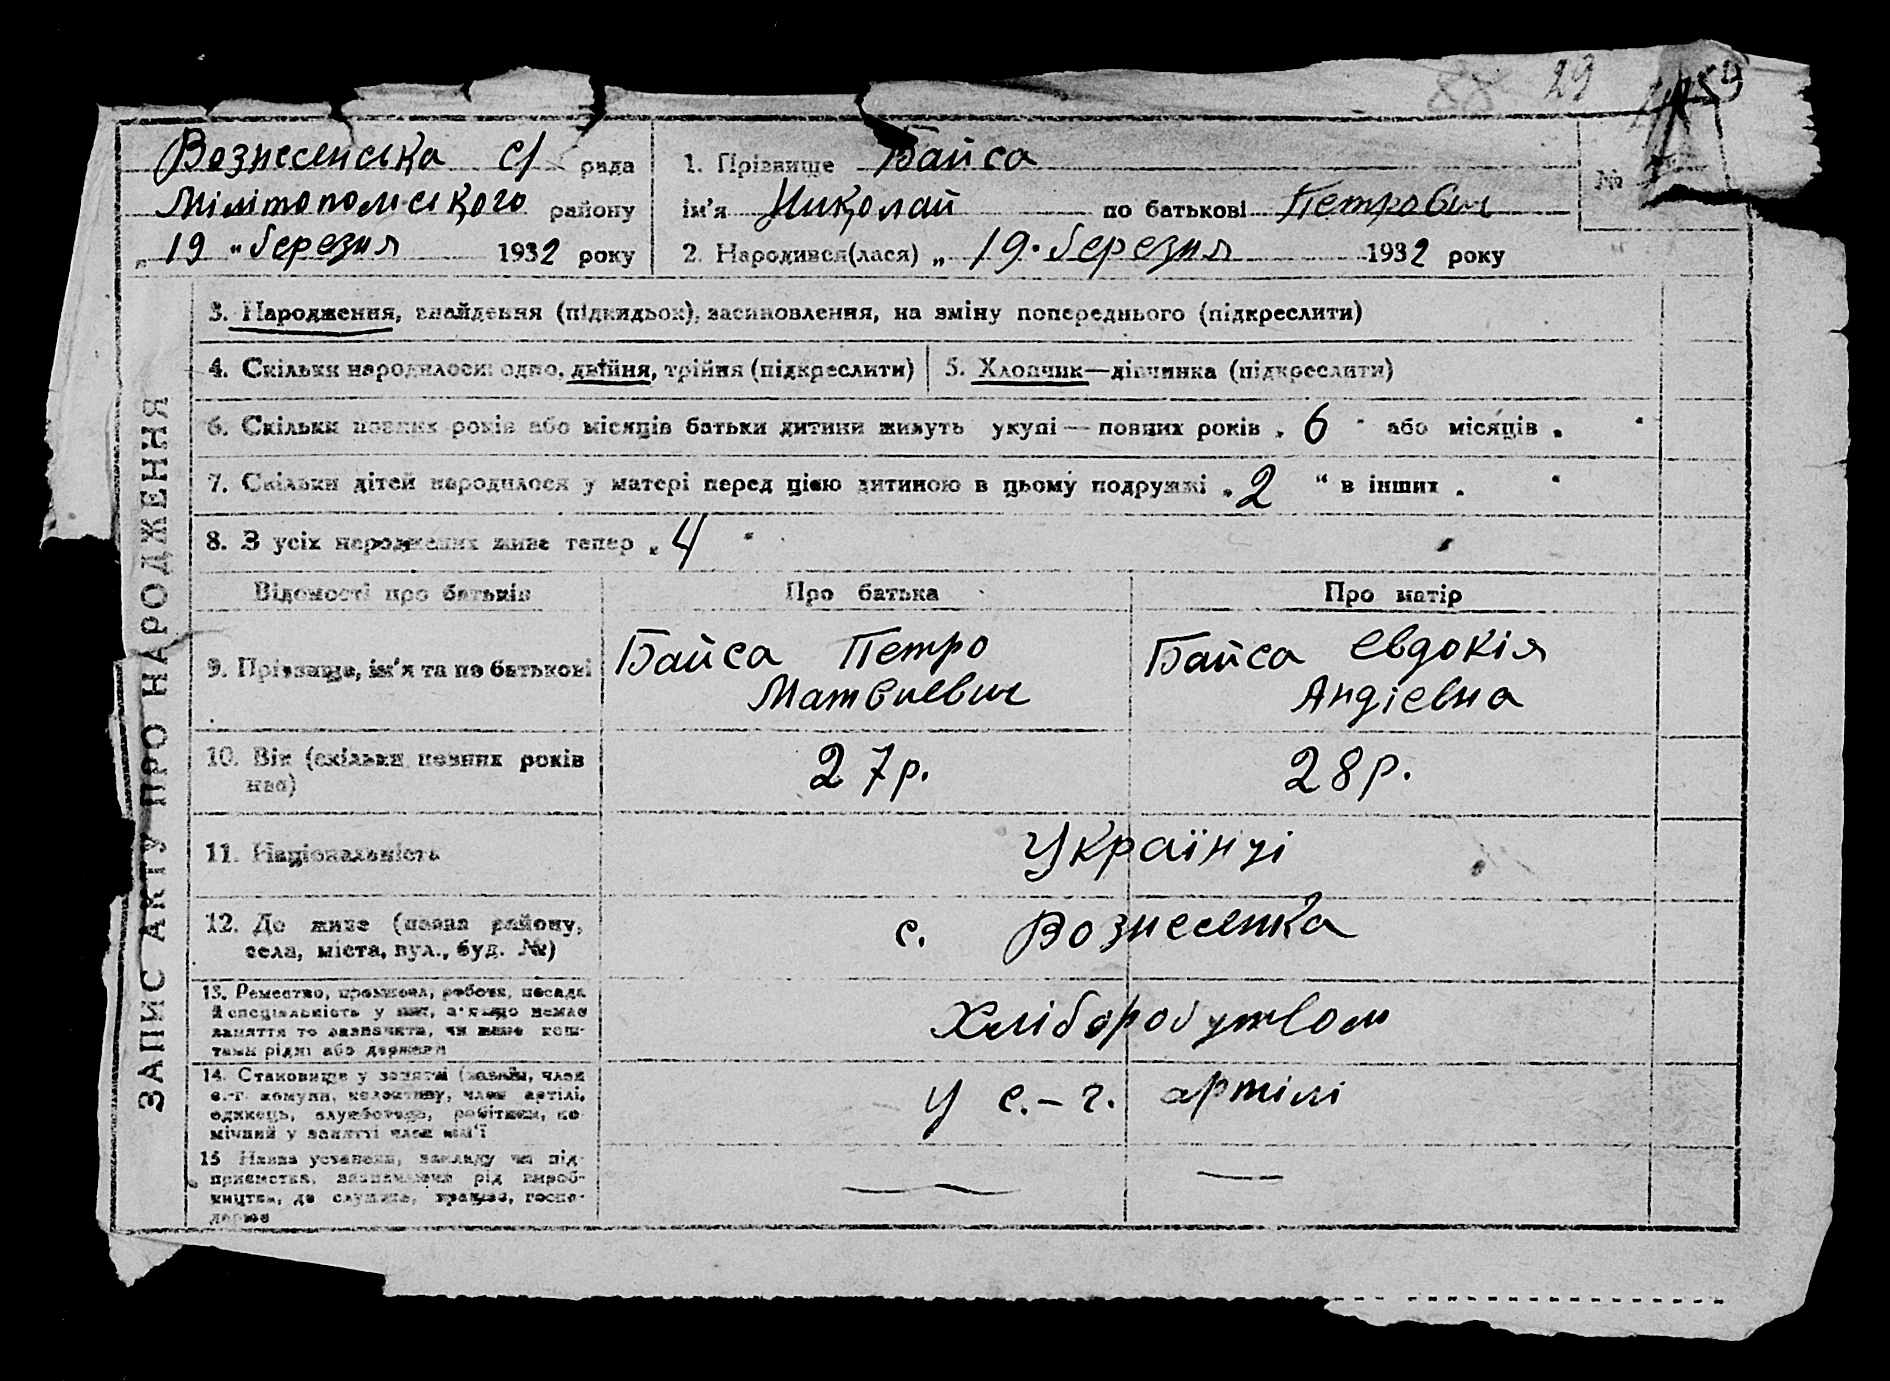 88 29
Вознесенська с/ рада
Мілітопольського району
„ 19 " березня 1932 року
1. Прізвище Байса
ім'я Николай по батькові Петрович
2. Народився(лася) „ 19 · березня 1932 року
№
ЗАПИС АКТУ ПРО НАРОДЖЕННЯ
3. Народження, знайдення (підкидьок), засиновлення, на зміну попереднього (підкреслити)
4. Скільки народилося: одно, двійня, трійня (підкреслити)
5. Хлопчик—дівчинка (підкреслити)
6. Скільки повних років або місяців батьки дитини живуть укупі — повних років „ 6 " або місяців „ "
7. Скільки дітей народилося у матері перед цією дитиною в цьому подружжі „ 2 " в інших „ "
8. З усіх народжених живе тепер „ 4 "
Відомості про батьків Про батька Про матір
9. Прізвище, ім'я та по батькові
Байса Петро
Матвиевич
Байса Евдокія
Андіевна
10. Вік (скільки повних років
має)
27р. 28р.
11. Національність Українці
12. Де живе (назва району,
села, міста, вул., буд. №)
с. Вознесенка
13. Ремество, промисел, робота, посада
й спеціальність у них, а якщо немає
заняття то зазначити, чи живе кош-
тами рідні або держави
Хліборобутвом
14. Становище у занятті (хазяїн, член
с.-г. комуни, колективу, член артілі,
одинець, службовець, робітник, по-
мічний у занятті член сім'ї
У с.-г. артілі
15 Назва установи, закладу чи під-
приємства, зазначаючи рід вироб-
ництва, де служить, працює, госпо-
дарює